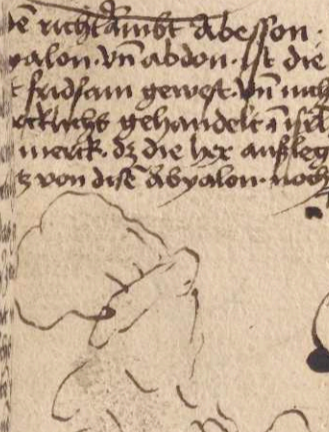 dē richtāmbt Abesson ·
yalon · vn̄ abdon · ist die
fridsam gewest · vn̄ nich
gehandelt ī isrl
merck · dz die her außleg
von disē Abyalon · noch